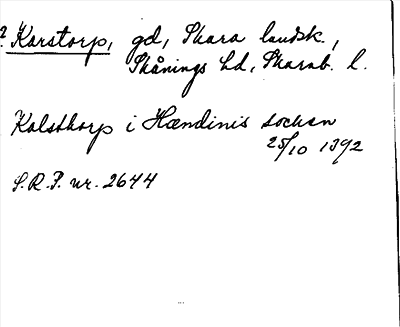 ? Karstorp, gd, Skara landsk.,
Skånings hd, Skarab. l.
Kalsthorp i Hændinis sochen
25/10 1392
S.R.P. nr. 2644